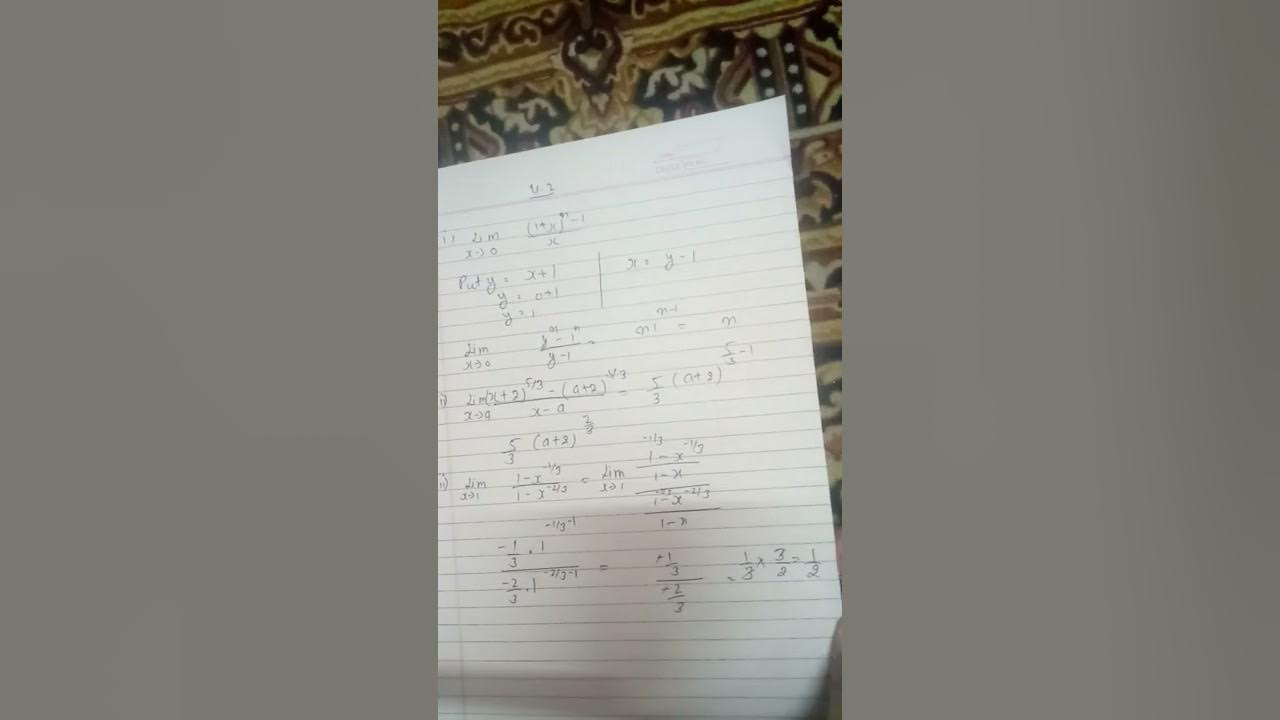 V.2
i) Lim x→0 (1+x)^n - 1 / x
Put y = x+1 | x = y-1
y = 0+1
y = 1
Lim x→0 y^n - 1^n / y-1 = n·1^(n-1) = n
ii) Lim x→a (x+2)^5/3 - (a+2)^5/3 / x-a = 5/3 (a+2)^(5/3 -1)
5/3 (a+2)^2/3
Lim x→1 1-x^-1/3 / 1-x^-2/3 = Lim x→1 (1^-1/3 - x^-1/3 / 1-x) / (1 - x^-2/3 / 1-x)
(-1/3 · 1^(-1/3-1)) / (-2/3 · 1^(-2/3-1)) = (+1/3) / (+2/3) = 1/3 × 3/2 = 1/2